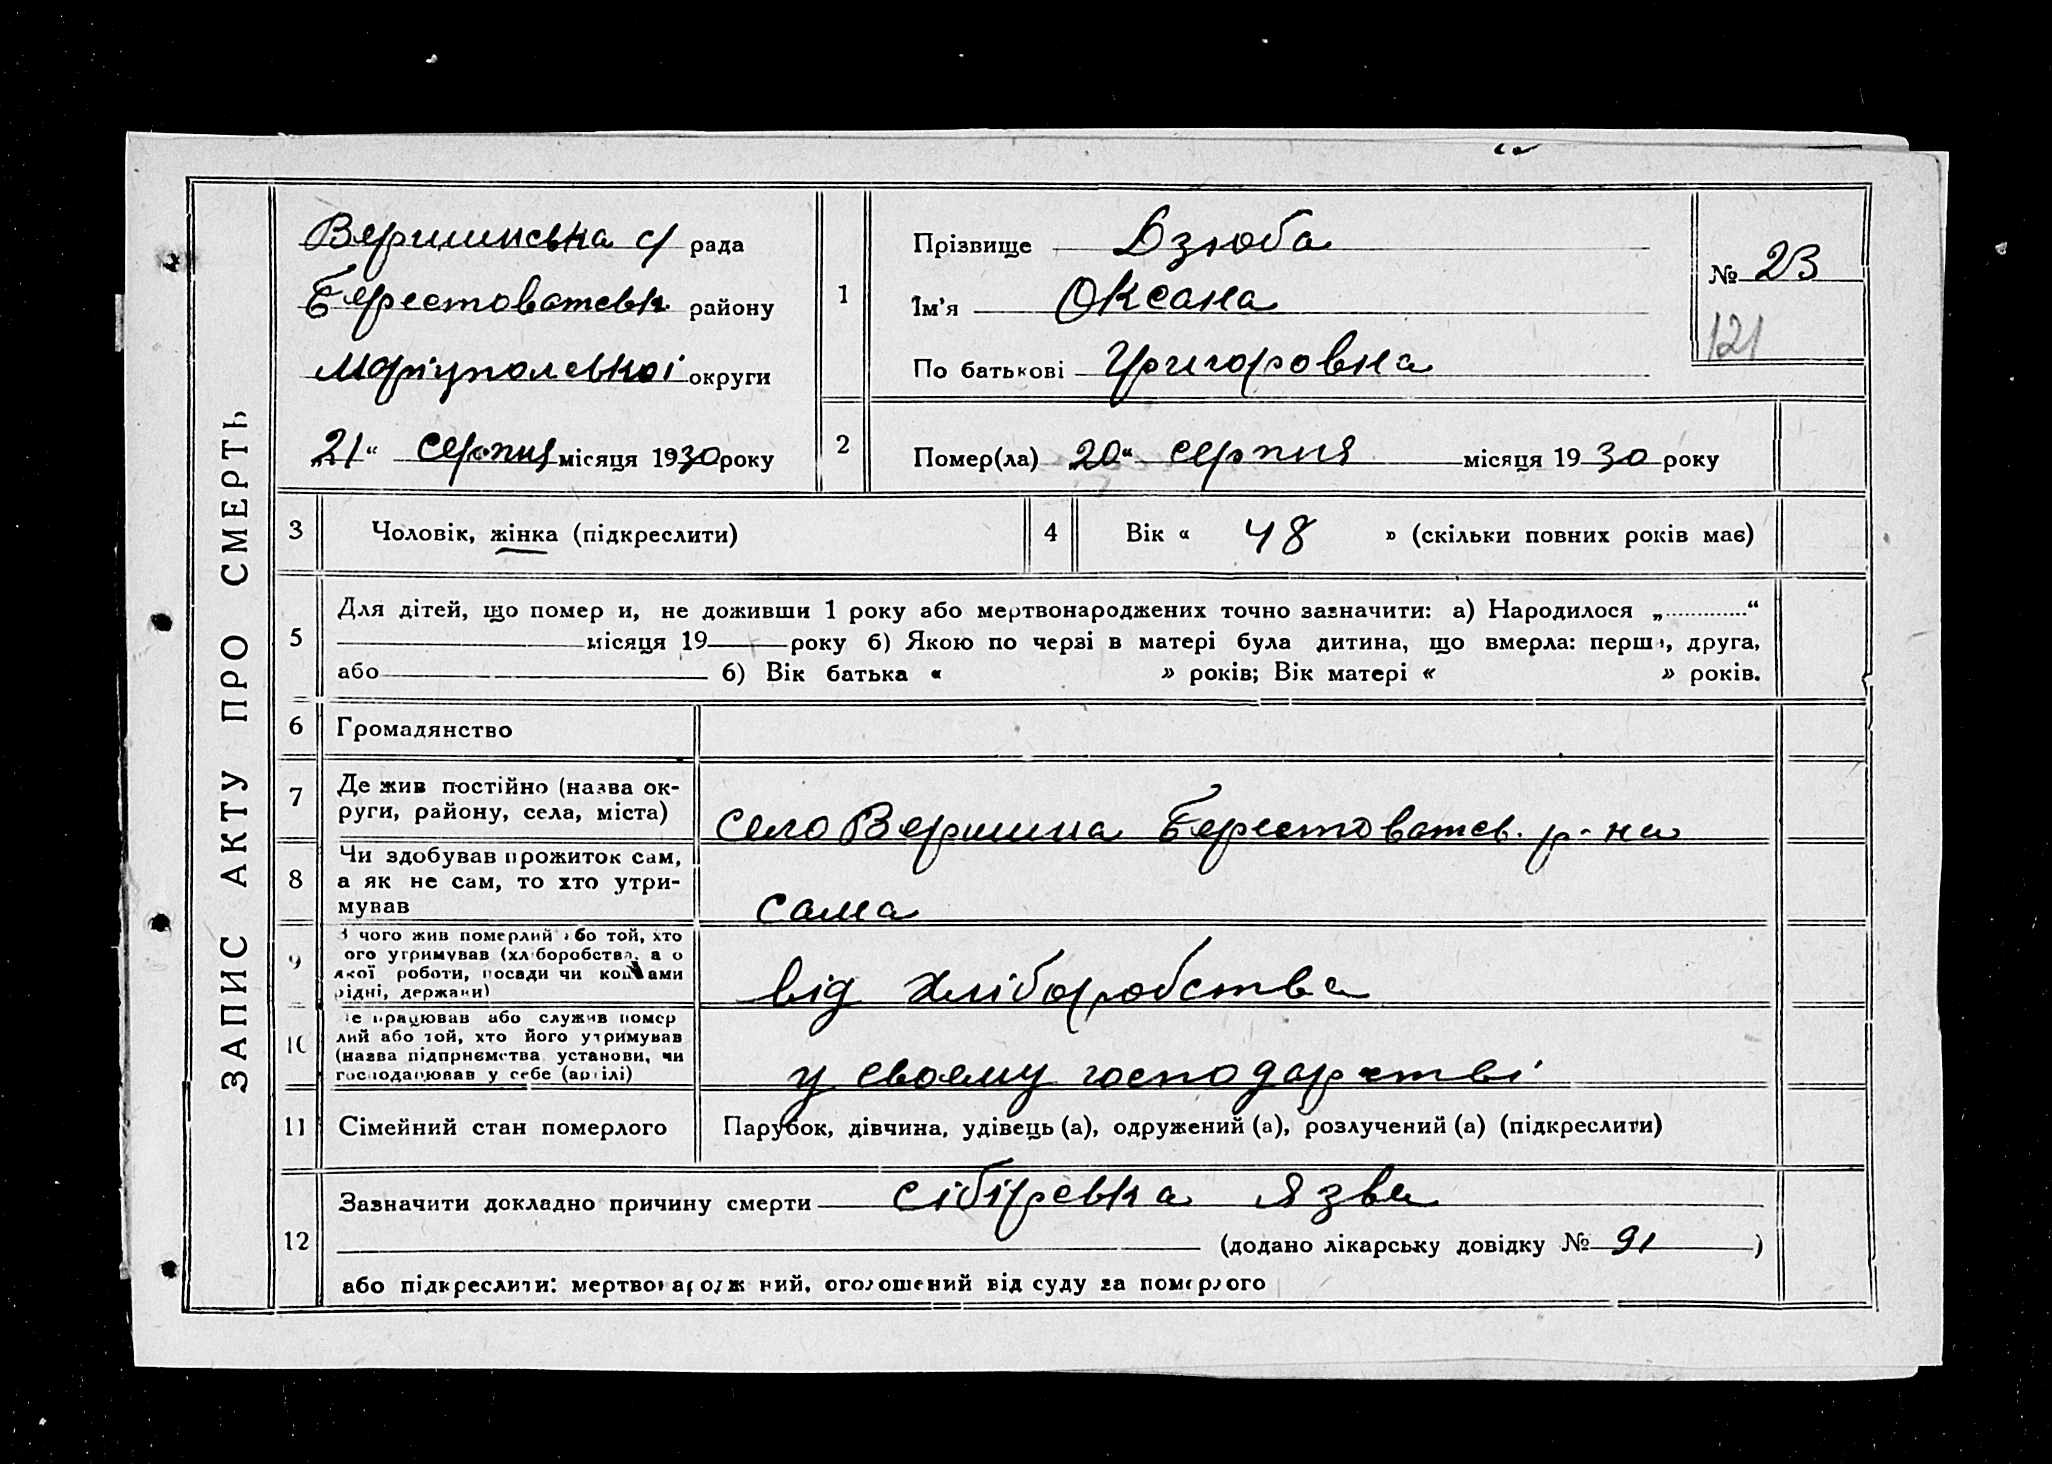 ЗАПИС АКТУ ПРО СМЕРТЬ
Вершинська с/ рада
Берестоватськ району
Маріупольської округи
„21“ серпня місяця 1930 року
1
Прізвище Дзюба
Ім'я Оксана
По батькові Григоровна
№ 23
121
2
Помер(ла) 20“ серпня місяця 1930 року
3
Чоловік, жінка (підкреслити)
4
Вік « 48 » (скільки повних років має)
5
Для дітей, що помер и, не доживши 1 року або мертвонароджених точно зазначити: а) Народилося „.............“
місяця 19 року б) Якою по черзі в матері була дитина, що вмерла: перша, друга,
або б) Вік батька « » років; Вік матері « » років.
6
Громадянство
7
Де жив постійно (назва ок-
руги, району, села, міста)
село Вершина Берестоватсв. р-на
8
Чи здобував прожиток сам,
а як не сам, то хто утри-
мував
сама
9
З чого жив померлий або той, хто
ого утримував (хліборобства, а о
якої роботи, посади чи коштами
рідні, держави)
від хліборобства
10
е працював або служив помер
лий або той, хто його утримував
(назва підприємства установи, чи
господарював у себе (артілі)
у своєму господарстві
11
Сімейний стан померлого
Парубок, дівчина, удівець (а), одружений (а), розлучений (а) (підкреслити)
12
Зазначити докладно причину смерти сібірсвка язва
(додано лікарську довідку № 91 )
або підкреслити: мертвонароджений, оголошений від суду за померлого